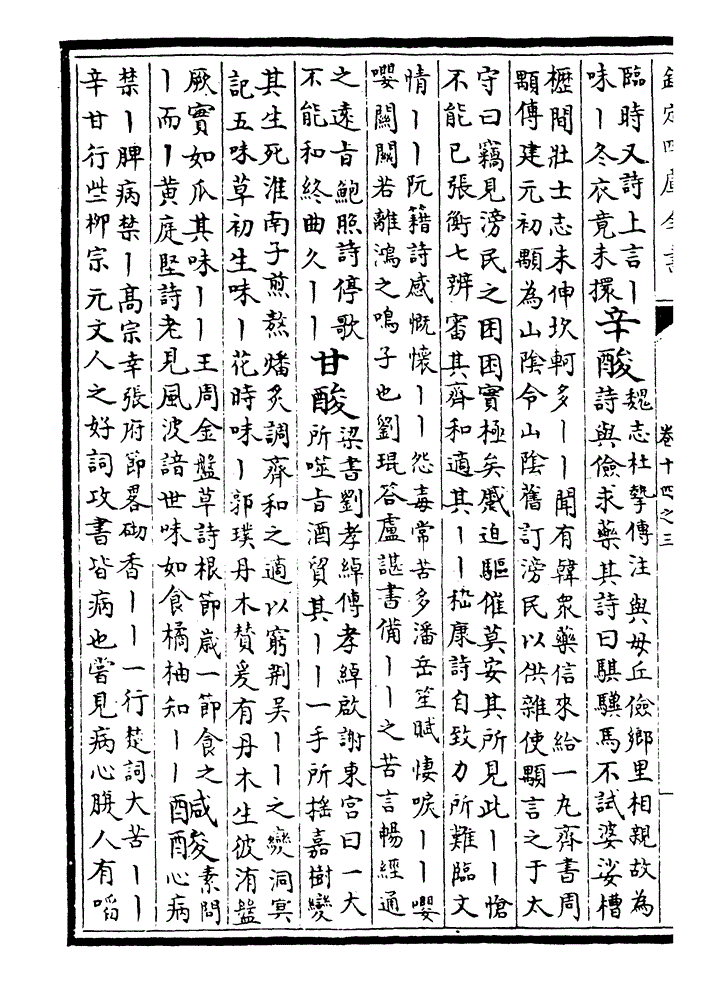 欽定四庫全書
卷十四之三
臨時又詩上言丨
味丨冬衣竟未擐
辛酸
魏志杜摯傳注與毋丘儉鄉里相親故為
詩與儉求藥其詩曰騏驥馬不試婆娑槽
櫪間壯士志未伸坎軻多丨丨聞有韓衆藥信來給一丸齊書周
顒傳建元初顒為山陰令山陰舊訂滂民以供雜使顒言之于太
守曰竊見滂民之困困實極矣蹙迫驅催莫安其所見此丨丨愴
不能已張衡七辨審其齊和適其丨丨嵇康詩自致力所難臨文
情丨丨阮籍詩感慨懷丨丨怨毒常苦多潘岳笙賦悽唳丨丨嚶
嚶關關若離鴻之鳴子也劉琨答盧諶書備丨丨之苦言暢經通
之遠㫖鮑照詩停歌
不能和終曲久丨丨
甘酸
梁書劉孝綽傳孝綽啟謝東宮曰一大
所噬㫖酒貿其丨丨一手所揺嘉樹變
其生死淮南子煎熬燔炙調齊和之適以窮荆吳丨丨之變洞冥
記五味草初生味丨花時味丨郭璞丹木贊爰有丹木生彼洧盤
厥實如瓜其味丨丨王周金盤草詩根節歳一節食之
丨而丨黃庭堅詩老見風波諳世味如食橘柚知丨丨
鹹酸
素問
心病
禁丨脾病禁丨高宗幸張府節畧砌香丨丨一行楚詞大苦丨丨
辛甘行些柳宗元文人之好詞攻書皆病也嘗見病心腹人有啗